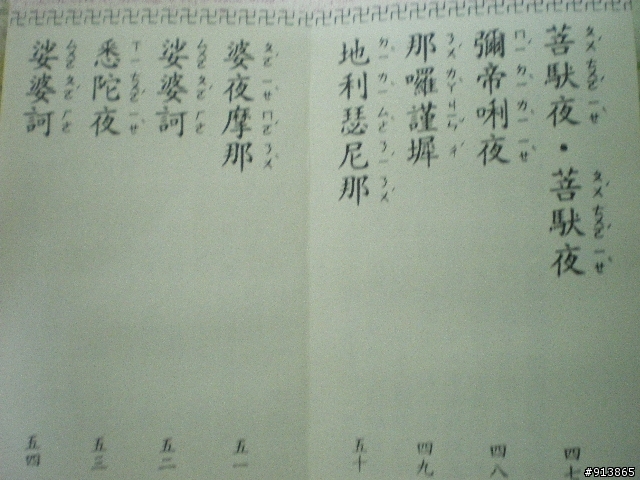 菩馱夜・菩馱夜 四七
彌帝唎夜 四八
那囉謹墀 四九
地利瑟尼那 五十
婆夜摩那 五一
娑婆訶 五二
悉陀夜 五三
娑婆訶 五四
#913865